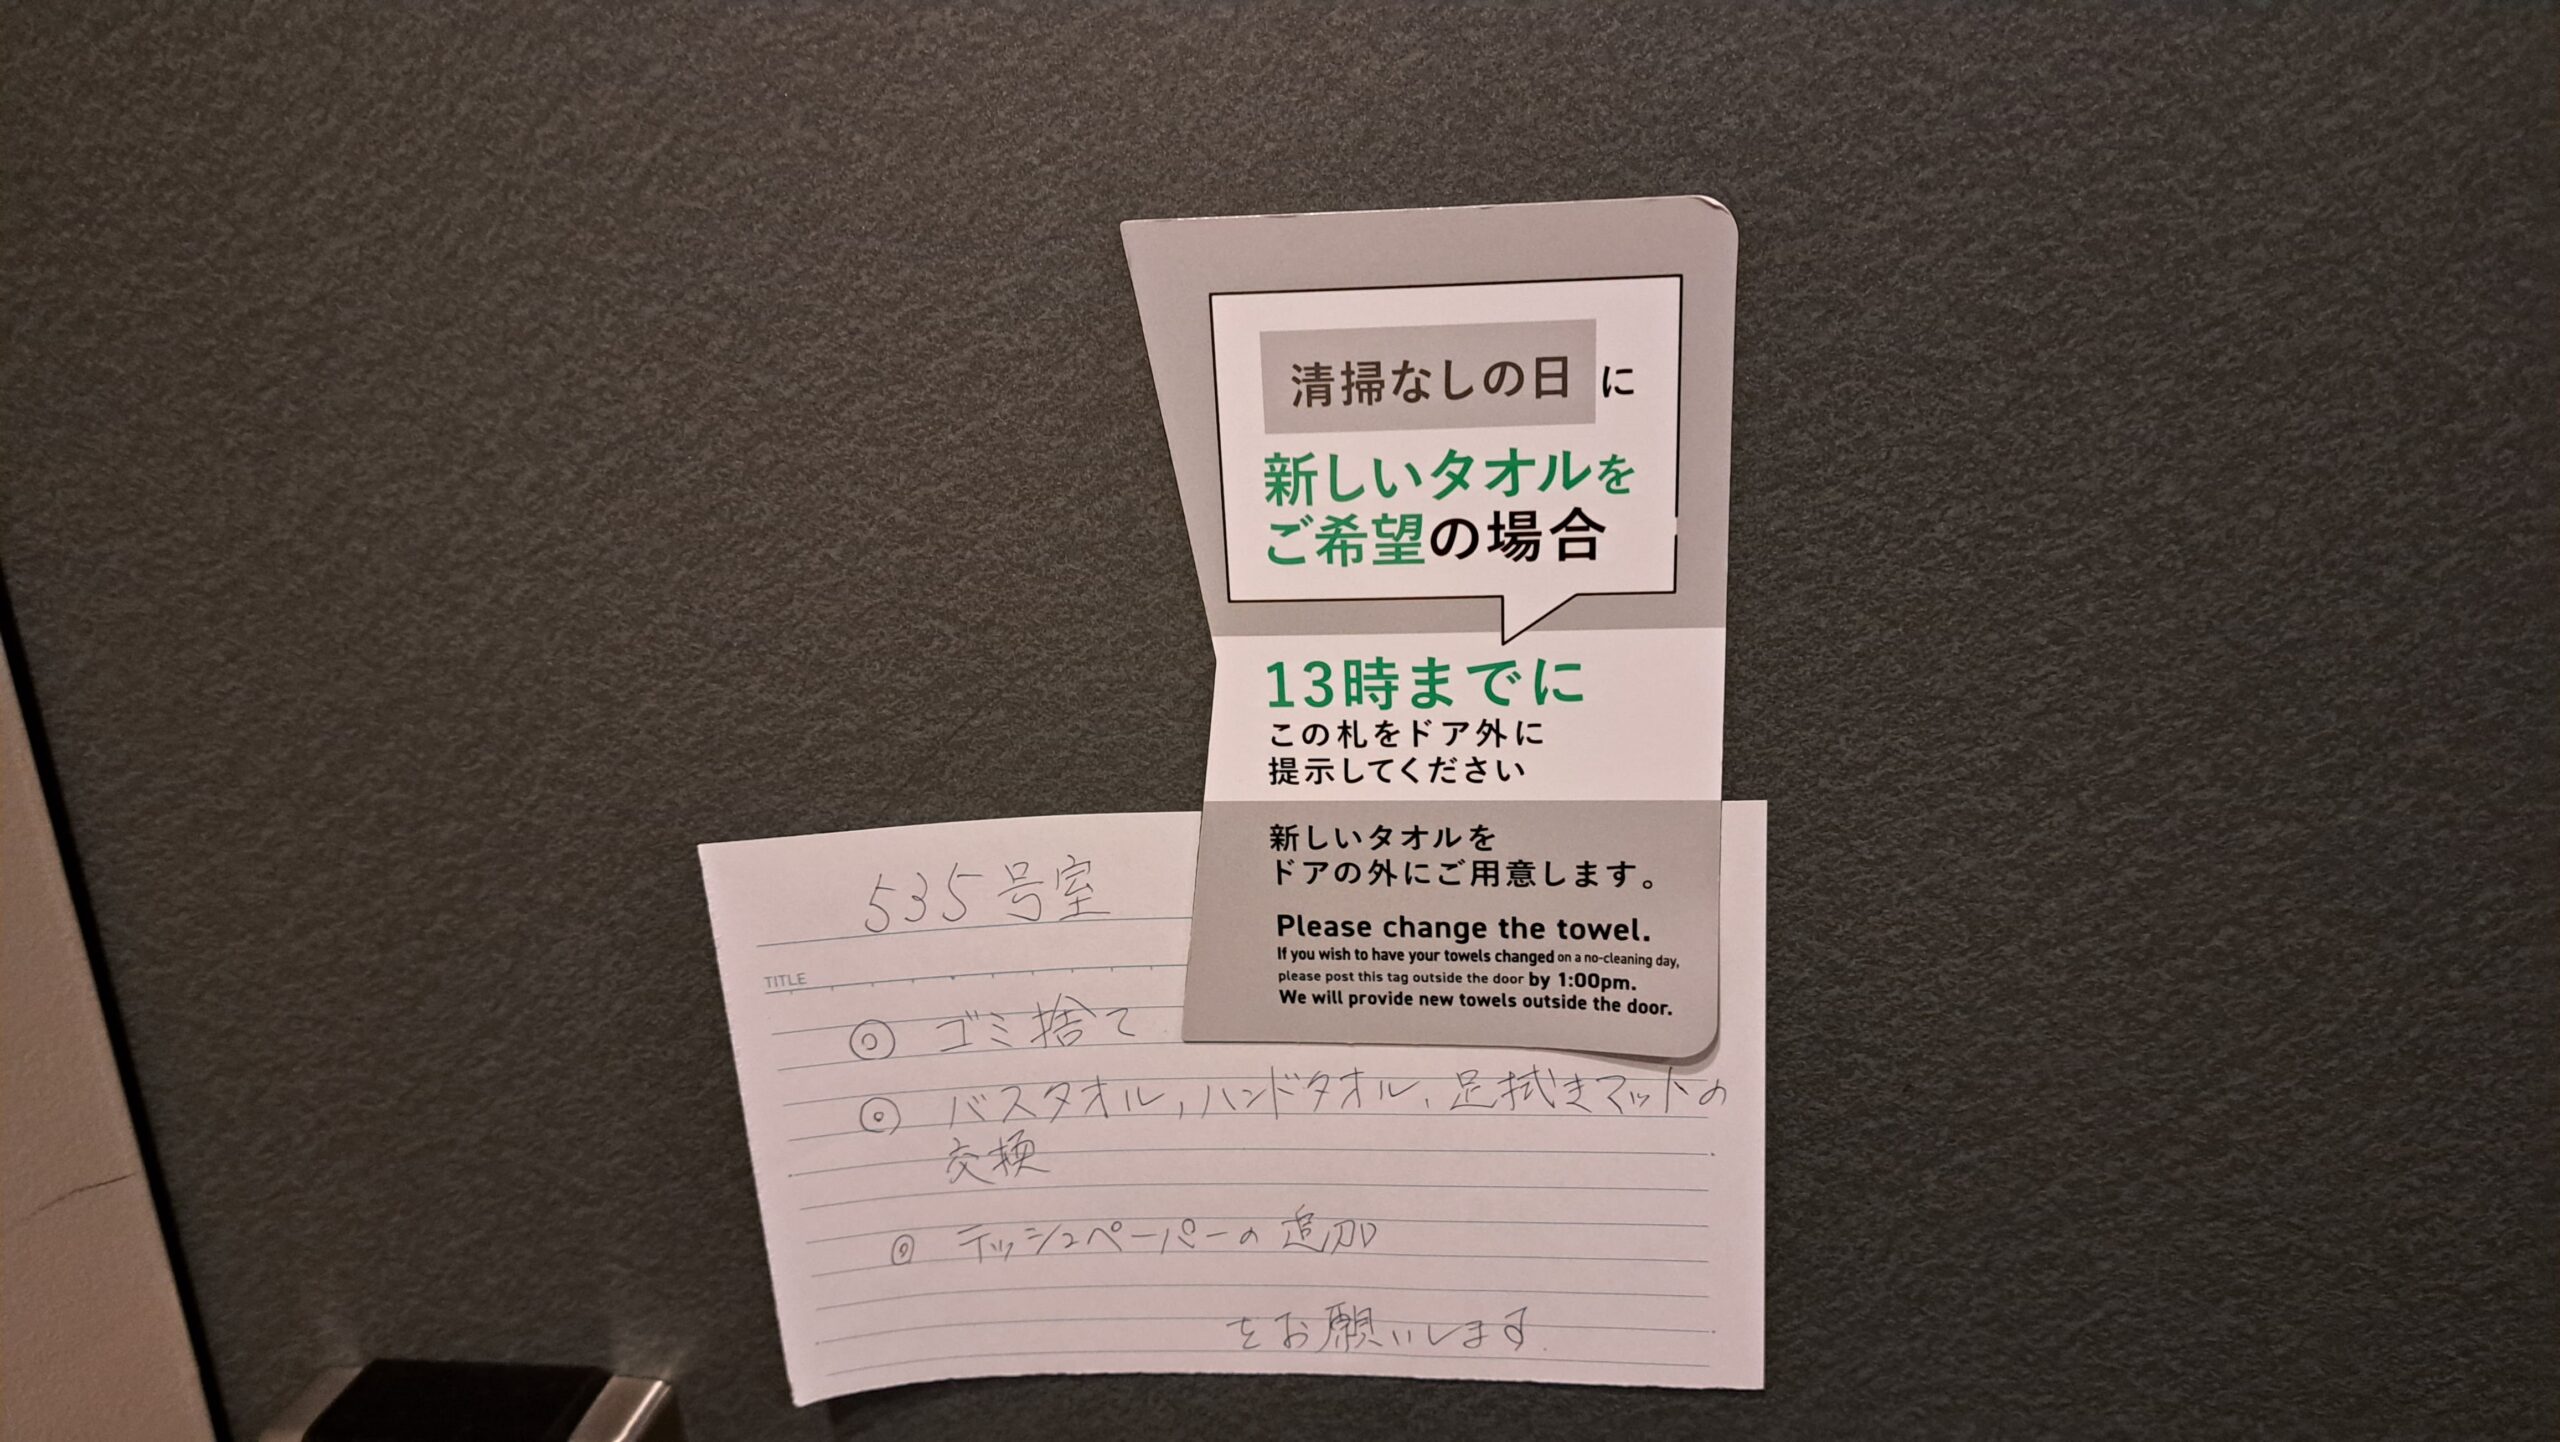 清掃なしの日に
新しいタオルを
ご希望の場合
13時までに
この札をドア外に
提示してください
新しいタオルを
ドアの外にご用意します。
Please change the towel.
If you wish to have your towels changed on a no-cleaning day,
please post this tag outside the door by 1:00pm.
We will provide new towels outside the door.
535号室
TITLE
◎ ゴミ捨て
◎ バスタオル,ハンドタオル,足拭きマットの
交換
◎ テッシュペーパーの追加
をお願いします.